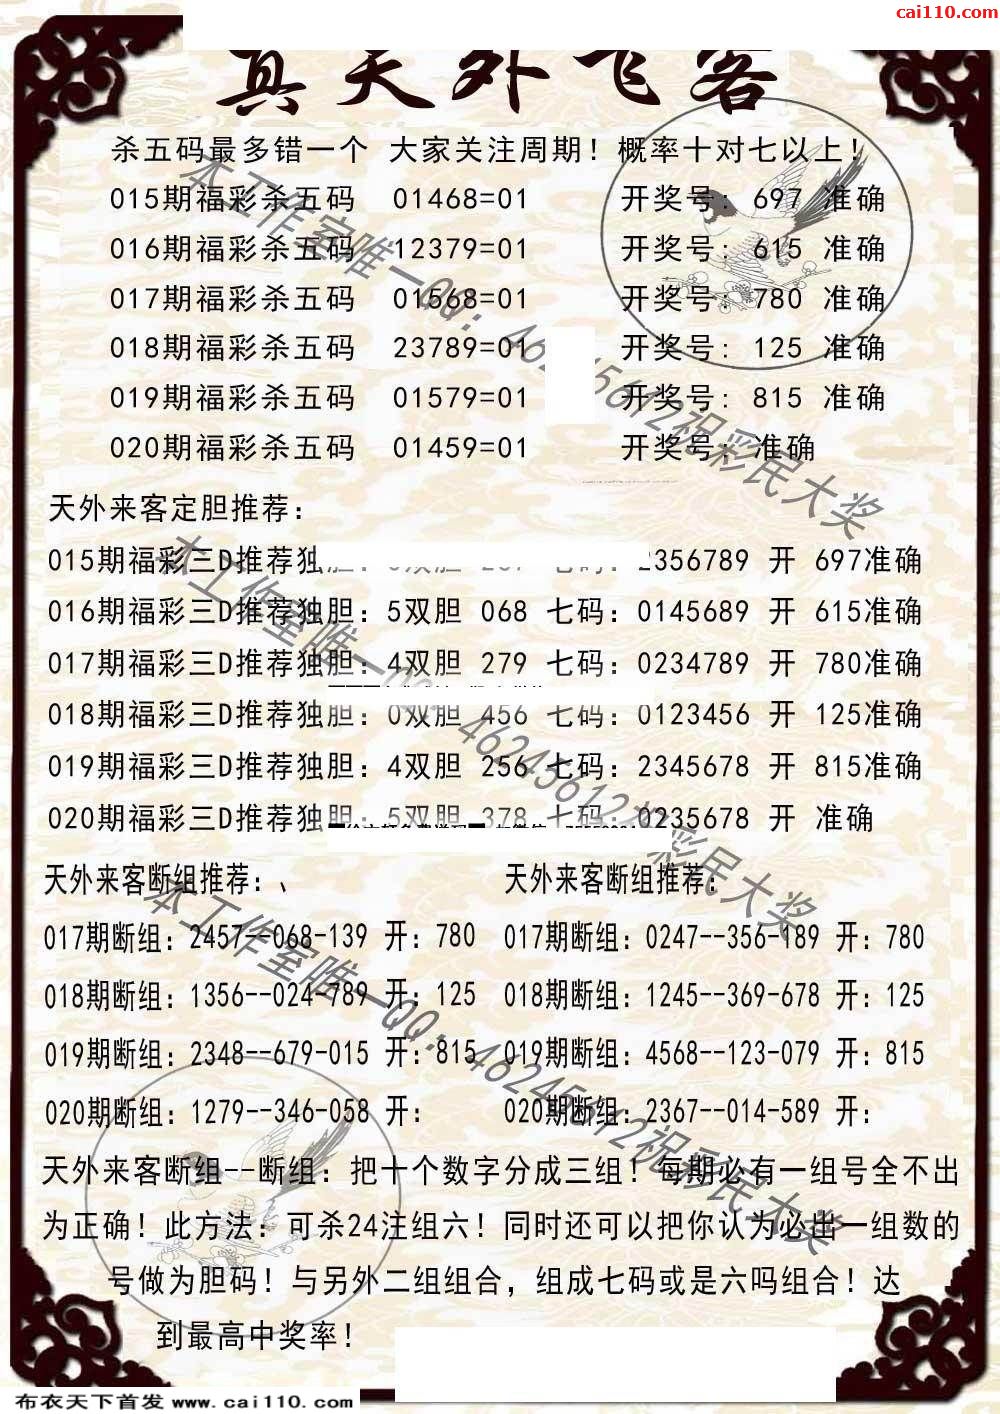 cai110.com
真天外飞客
杀五码最多错一个 大家关注周期！概率十对七以上！
015期福彩杀五码 01468=01 开奖号: 697 准确
016期福彩杀五码 12379=01 开奖号: 615 准确
017期福彩杀五码 01568=01 开奖号: 780 准确
018期福彩杀五码 23789=01 开奖号: 125 准确
019期福彩杀五码 01579=01 开奖号: 815 准确
020期福彩杀五码 01459=01 开奖号: 准确
天外来客定胆推荐:
015期福彩三D推荐独胆: 2356789 开 697准确
016期福彩三D推荐独胆: 5双胆 068 七码: 0145689 开 615准确
017期福彩三D推荐独胆: 4双胆 279 七码: 0234789 开 780准确
018期福彩三D推荐独胆: 0双胆 456 七码: 0123456 开 125准确
019期福彩三D推荐独胆: 4双胆 256 七码: 2345678 开 815准确
020期福彩三D推荐独胆: 5双胆 378 七码: 0235678 开 准确
天外来客断组推荐:、 天外来客断组推荐:
017期断组: 2457--068-139 开: 780 017期断组: 0247--356-189 开: 780
018期断组: 1356--024-789 开: 125 018期断组: 1245--369-678 开: 125
019期断组: 2348--679-015 开: 815 019期断组: 4568--123-079 开: 815
020期断组: 1279--346-058 开: 020期断组: 2367--014-589 开:
天外来客断组--断组: 把十个数字分成三组！每期必有一组号全不出
为正确！此方法: 可杀24注组六！同时还可以把你认为必出一组数的
号做为胆码！与另外二组组合, 组成七码或是六吗组合！达
到最高中奖率！
本工作室唯一QQ: 46245612祝彩民大奖
本工作室唯一QQ: 46245612祝彩民大奖
本工作室唯一QQ: 46245612祝彩民大奖
布衣天下首发 www.cai110.com